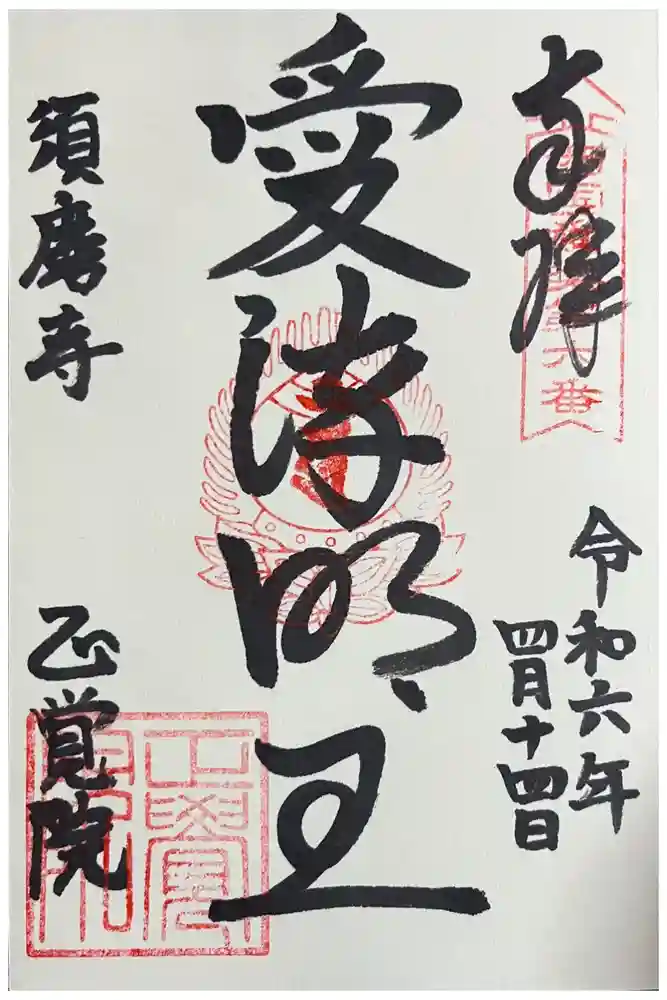 奉拝
令和六年
四月十四日
愛染明王
須磨寺
正覚院